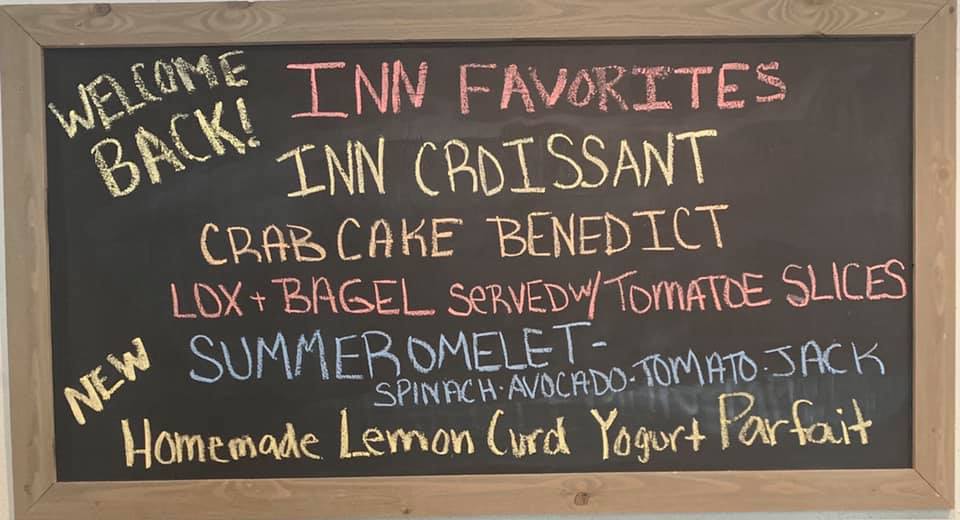 WELCOME
BACK!
INN FAVORITES
INN CROISSANT
CRAB CAKE BENEDICT
LOX + BAGEL SERVED W/ TOMATOE SLICES
NEW
SUMMER OMELET-
SPINACH · AVOCADO · TOMATO · JACK
Homemade Lemon Curd Yogurt Parfait